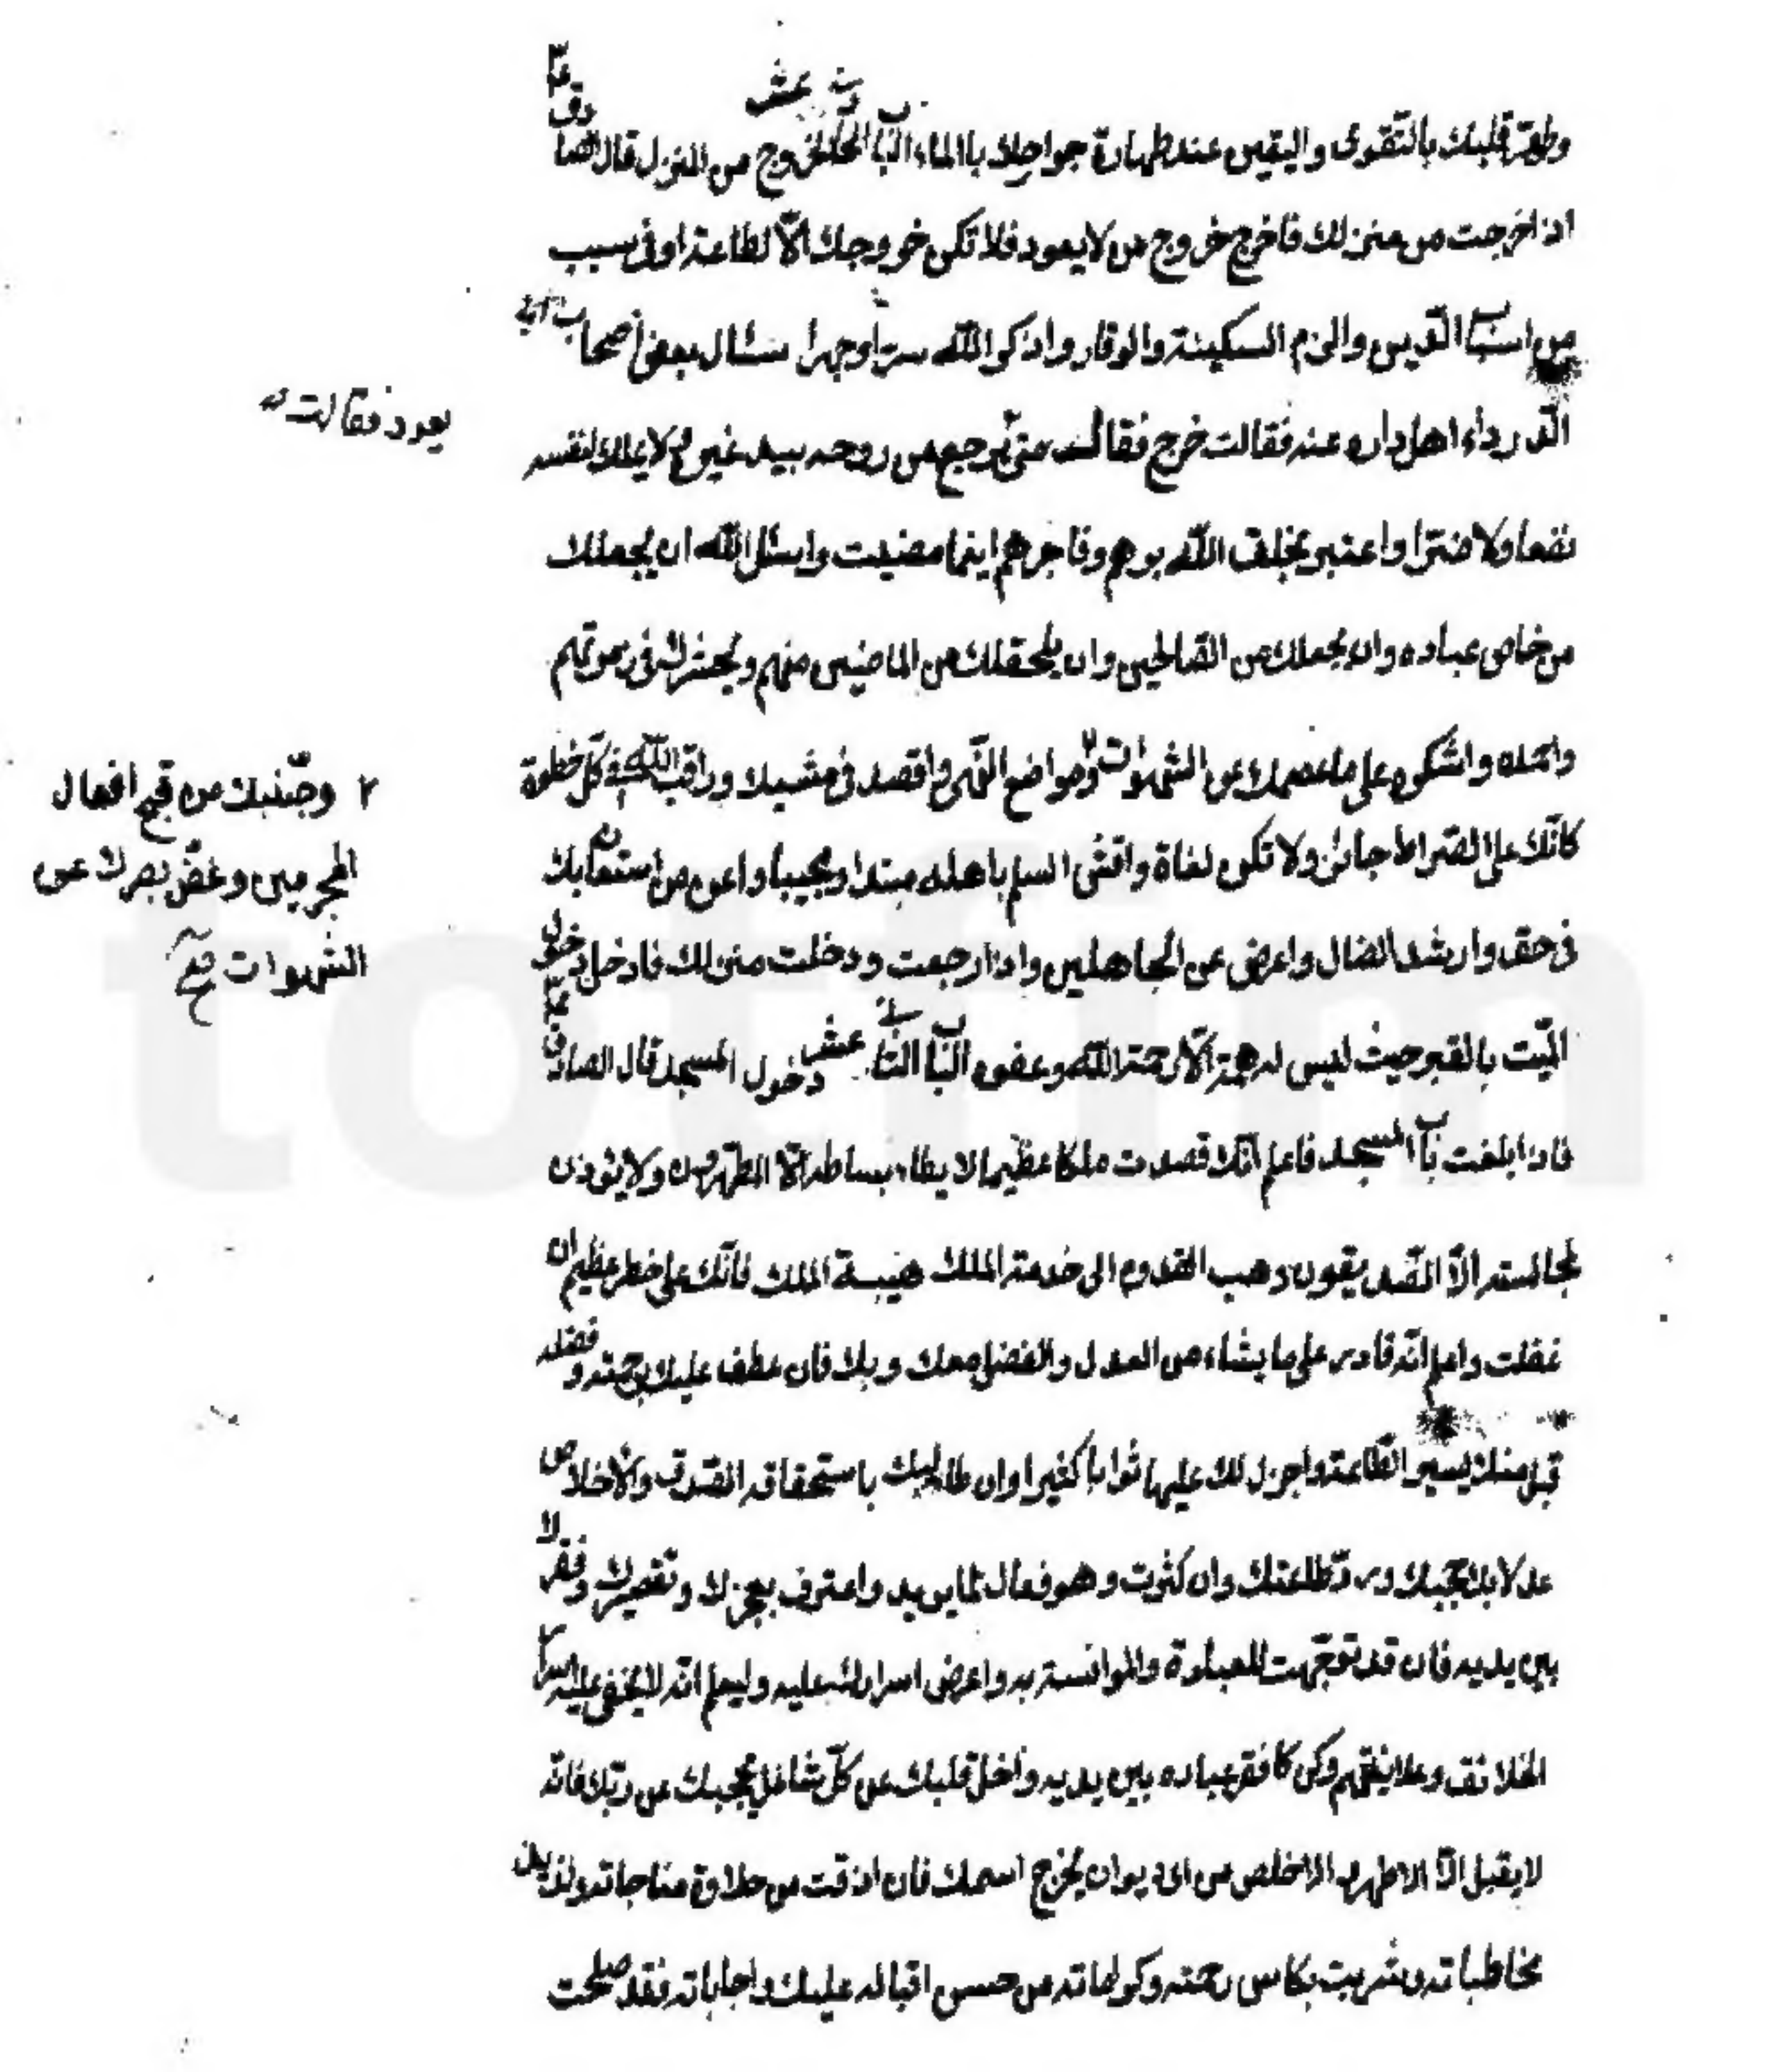 وطهّر قلبك بالتّقوى واليقين عند طهارة جوارحك بالماء البا الحادى عشر فى الخروج من المنزل قال الصادق ع
اذا خرجت من منزلك فاخرج خروج من لا يعود فلا تكن خروجك الّا لطاعة او فى سبب
من اسباب الدّين والزم السكينة والوقار واذكر اللّه سرّا وجهرا سئال بعض اصحاب ابى
الدّرداء اهل داره عنه فقالت خرج فقال متى يرجع من روحه بيد غيره لا يملك لنفسه
يعود فقالت
نفعا ولا ضرّا واعتبر بخلق اللّه برهم وفاجرهم اينما مضيت واسئل اللّه ان يجعلك
من خاص عباده وان يجعلك من الصّالحين وان يلحقلك من الماضين منهم ويحشرك فى زمرتهم
واحمده واشكره على ما عصمك عن الشهوات ٢ ومواضع النّهى واقصد فى مشيك وراقب اللّه فى كلّ خطوة
٢ وجنّبك من قبح افعال
المجرمين وغضّ بصرك عن
الشهوات
كانّك على الصّراط جائز ولا تكن لفاة وافشى السلم باهله مبتدا ومجيبا واعن من استعان بك
فى حق وارشد الضال واعرض عن الجاهلين واذا رجعت ودخلت منزلك فادخل دخول
الميّت بالقبر حيث ليس له همّة الّا رحمة اللّه وعفوه البا الثانى عشر دخول المسجد قال الصادق ع
فاذا بلغت باب المسجد فاعلم انّك قصدت ملكا عظيما لا يطاء بساطه الّا المطهّرون ولا يؤذن
لمجالسته الّا الصّديقون وهب القدوم الى خدمة الملك هيبة الملك فانّك على خطر عظيم ان
غفلت واعلم انّه قادر على ما يشاء من العدل والفضل معك وبك فان عطف عليك برحمته وفضله
قبل منك يسير الطّاعة واجزل لك عليها ثوابا كثيرا وان طالبك باستحقاقه الصّدق والاخلاص
عدلا بك حجبك وردّ طاعتك وان كثرت وهو فعال لما يريد واعترف بعجزك وتقصيرك وفقرك
بين يديه فان قد توجّهت للعبادة والموانسة به واعرض اسرارك عليه وليعلم انّه لا يخفى عليه اسرار
الخلائق وعلانيتهم وكن كافقر عباده بين يديه واخل قلبك عن كلّ شاغل يحجبك عن ربّك فانّه
لا يقبل الّا الاطهر والاخلص من اى ديوان يخرج اسمك فان اذقت من حلاوة مناجاته ولذيذ
مخاطباته وشربت بكاس رحمته وكراماته من حسن اقباله عليك واجاباته فقد صلحت